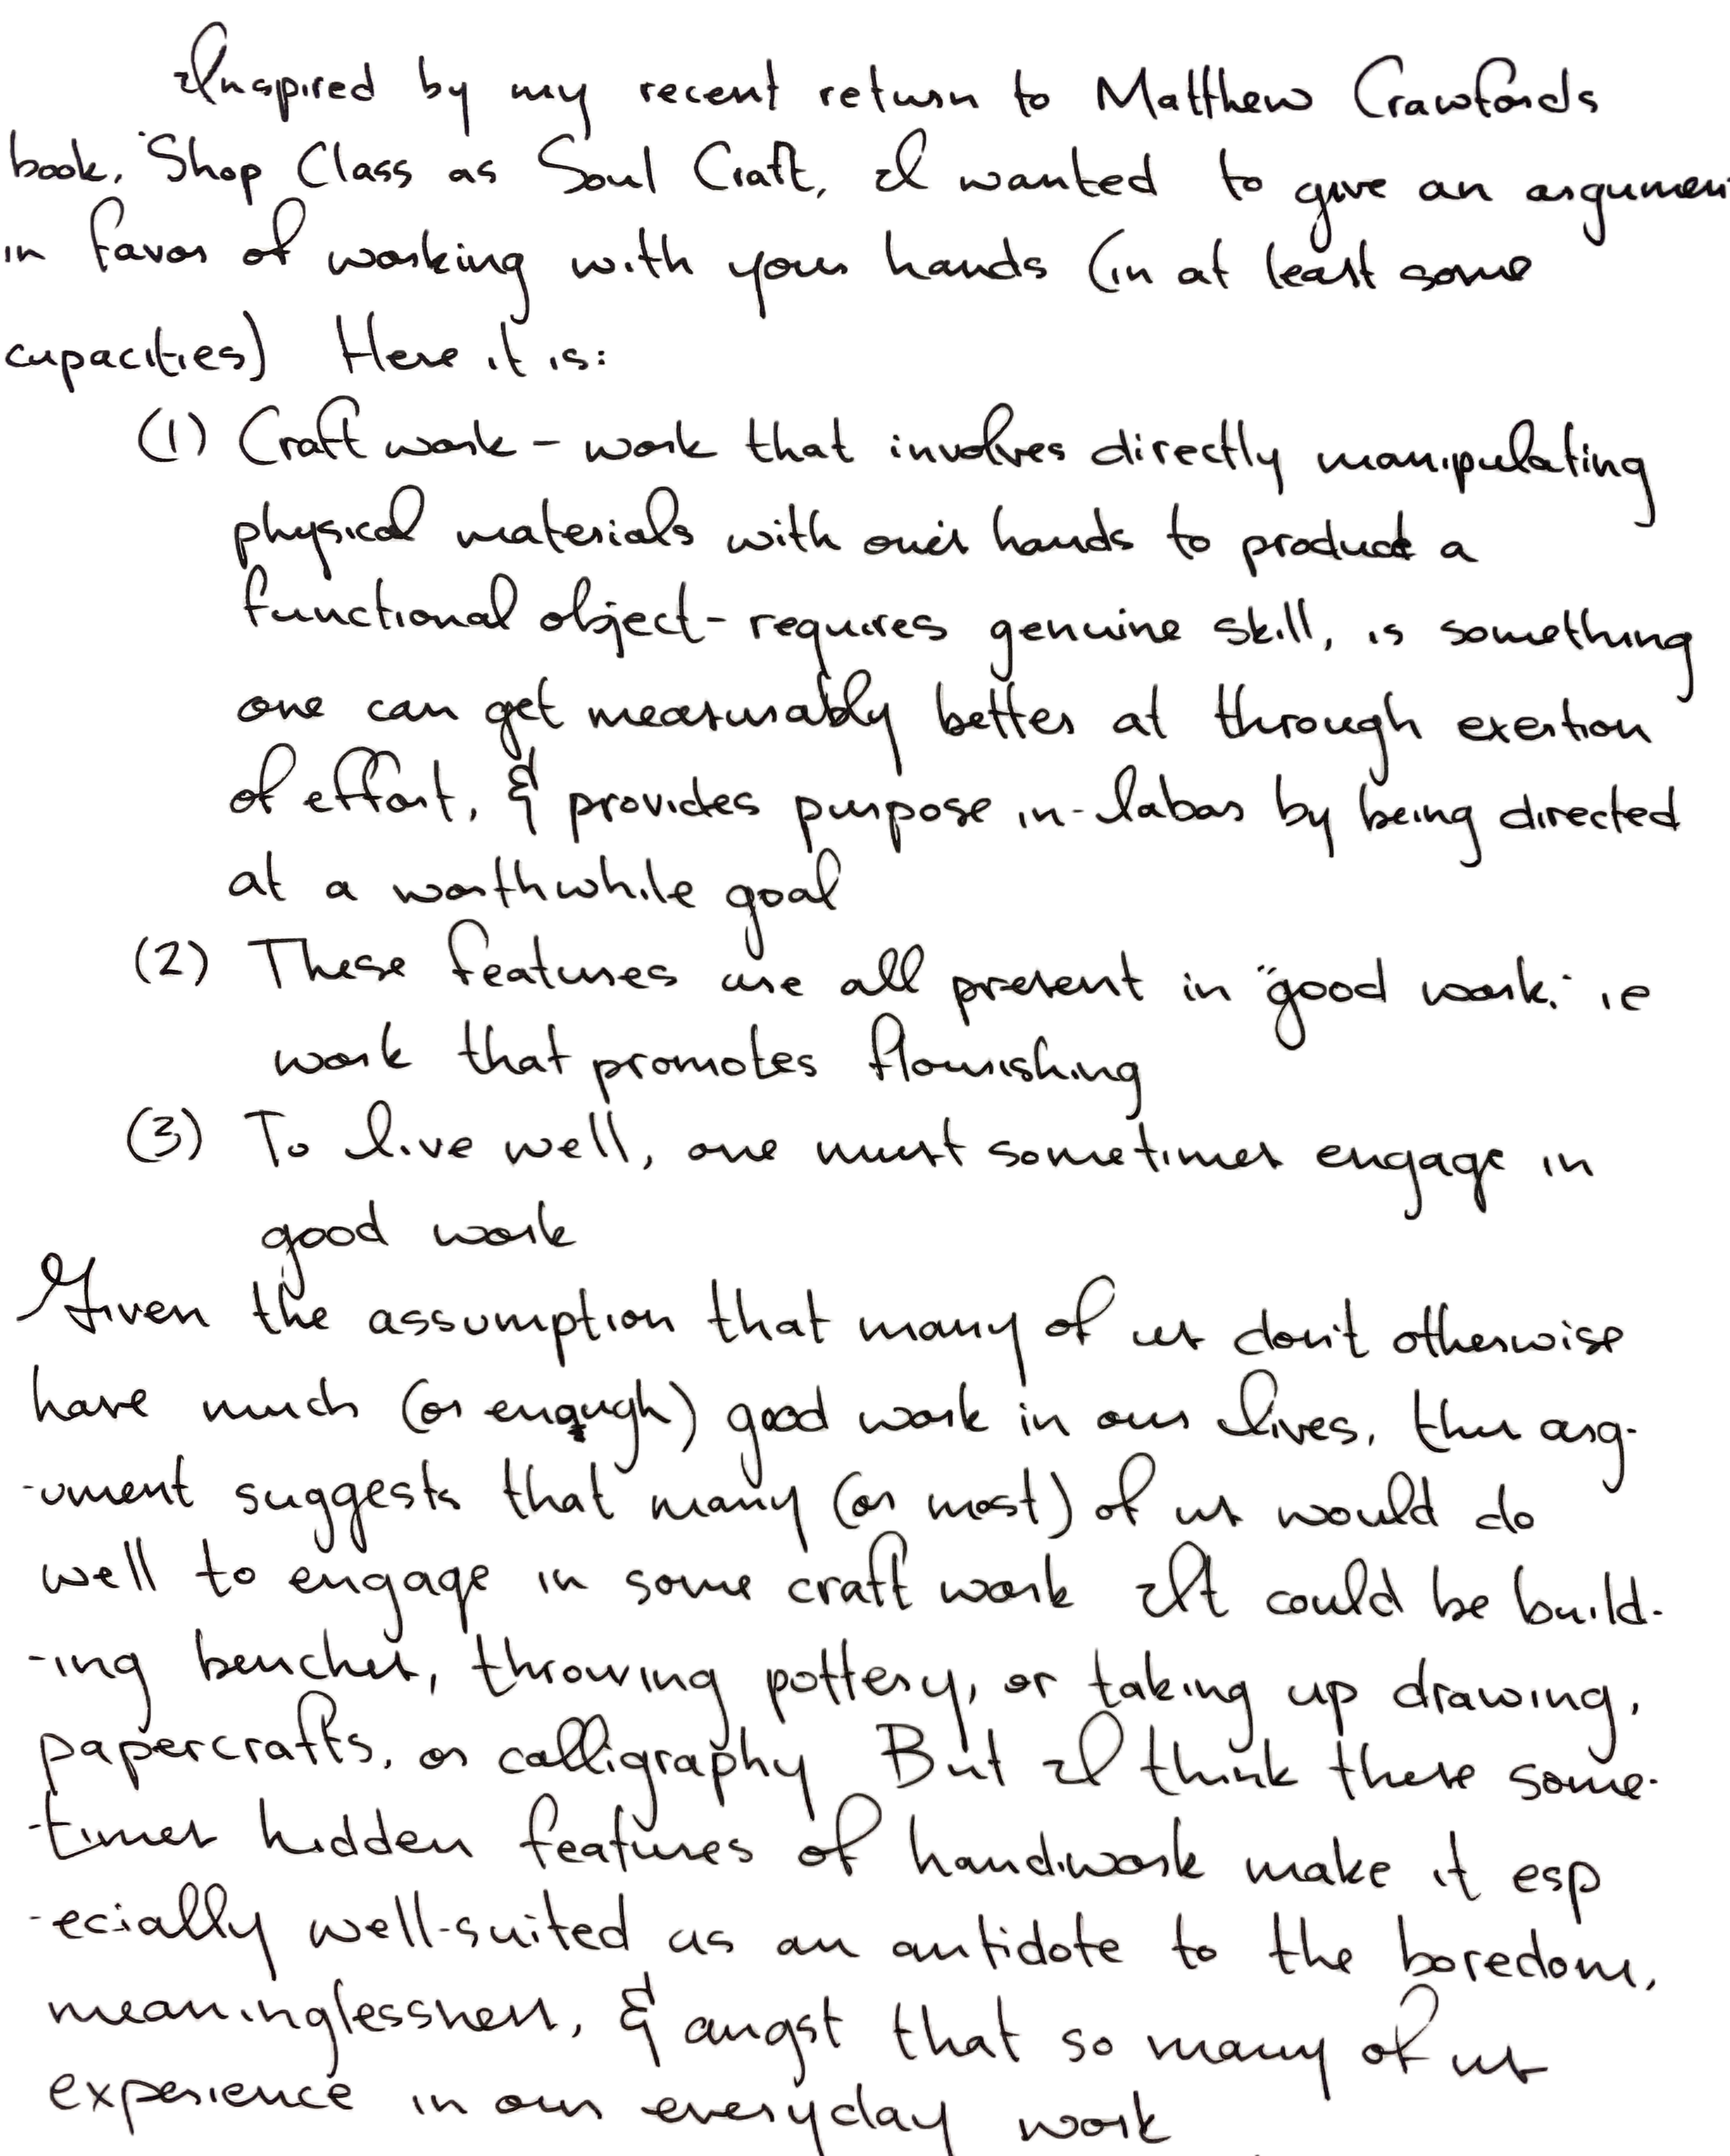 Inspired by my recent return to Matthew Crawfords
book, "Shop Class as Soul Craft, I wanted to give an argumen
in favor of working with your hands (in at least some
capacities) Here it is:
(1) Craft work - work that involves directly manipulating
physical materials with one's hands to product a
functional object - requires genuine skill, is something
one can get measurably better at through exertion
of effort, & provides purpose in-labor by being directed
at a worthwhile goal
(2) These features are all present in "good work," ie
work that promotes flourishing
(3) To live well, one must sometimes engage in
good work
Given the assumption that many of us don't otherwise
have much (or enough) good work in our lives, this arg-
-ument suggests that many (or most) of us would do
well to engage in some craft work It could be build-
-ing benches, throwing pottery, or taking up drawing,
papercrafts, or calligraphy But I think these some-
-times hidden features of handiwork make it esp
-ecially well-suited as an antidote to the boredom,
meaninglessness, & angst that so many of us
experience in our everyday work